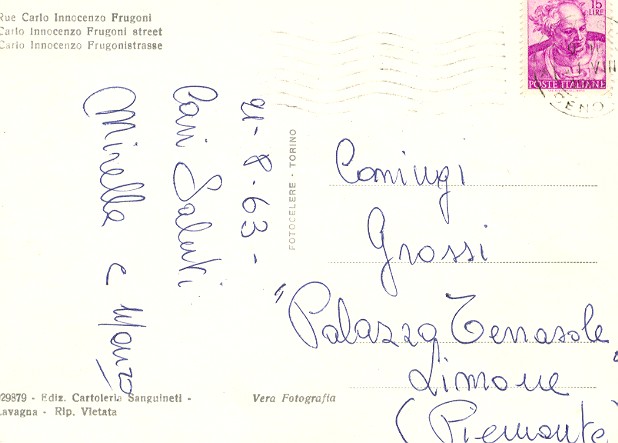 Rue Carlo Innocenzo Frugoni
Carlo Innocenzo Frugoni street
Carlo Innocenzo Frugonistrasse
15
LIRE
POSTE ITALIANE
VIII
GENO
21-8-63-
Cari Saluti
Mirella e
FOTOCELERE - TORINO
Coniugi
Grossi
"Palazzo Terrasole"
Limone
(Piemonte)
29879 - Ediz. Cartoleria Sanguineti -
Lavagna - Rip. Vietata
Vera Fotografia